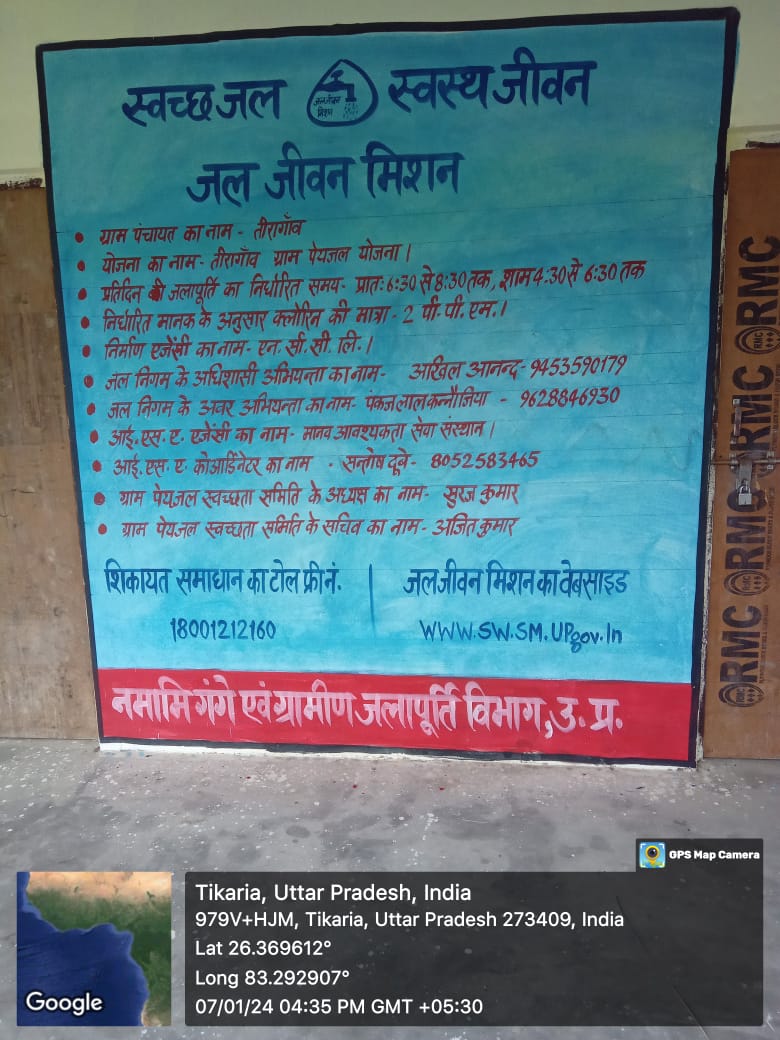 स्वच्छ जल जल जीवन मिशन स्वस्थ जीवन
जल जीवन मिशन
• ग्राम पंचायत का नाम - तीरागाँव
• योजना का नाम - तीरागाँव ग्राम पेयजल योजना।
• प्रतिदिन की जलापूर्ति का निर्धारित समय - प्रातः 6:30 से 8:30 तक, शाम 4:30 से 6:30 तक
• निर्धारित मानक के अनुसार क्लोरिन की मात्रा - 2 पी. पी. एम.।
• निर्माण एजेंसी का नाम - एन. सी. सी. लि.।
• जल निगम के अधिशासी अभियन्ता का नाम - अखिल आनन्द - 9453590179
• जल निगम के अवर अभियन्ता का नाम - पंकज लाल कन्नौजिया - 9628846930
• आई. एस. ए. एजेंसी का नाम - मानव आवश्यकता सेवा संस्थान।
• आई. एस. ए. कोआर्डिनेटर का नाम - सन्तोष दूबे - 8052583465
• ग्राम पेयजल स्वच्छता समिति के अध्यक्ष का नाम - सुरज कुमार
• ग्राम पेयजल स्वच्छता समिति के सचिव का नाम - अजित कुमार
शिकायत समाधान का टोल फ्री नं. | जल जीवन मिशन का वेबसाइड
18001212160 WWW.SW.SM.UPgov.In
नमामि गंगे एवं ग्रामीण जलापूर्ति विभाग, उ. प्र.
RMC RMC RMC RMC
GPS Map Camera
Tikaria, Uttar Pradesh, India
979V+HJM, Tikaria, Uttar Pradesh 273409, India
Lat 26.369612°
Long 83.292907°
07/01/24 04:35 PM GMT +05:30
Google